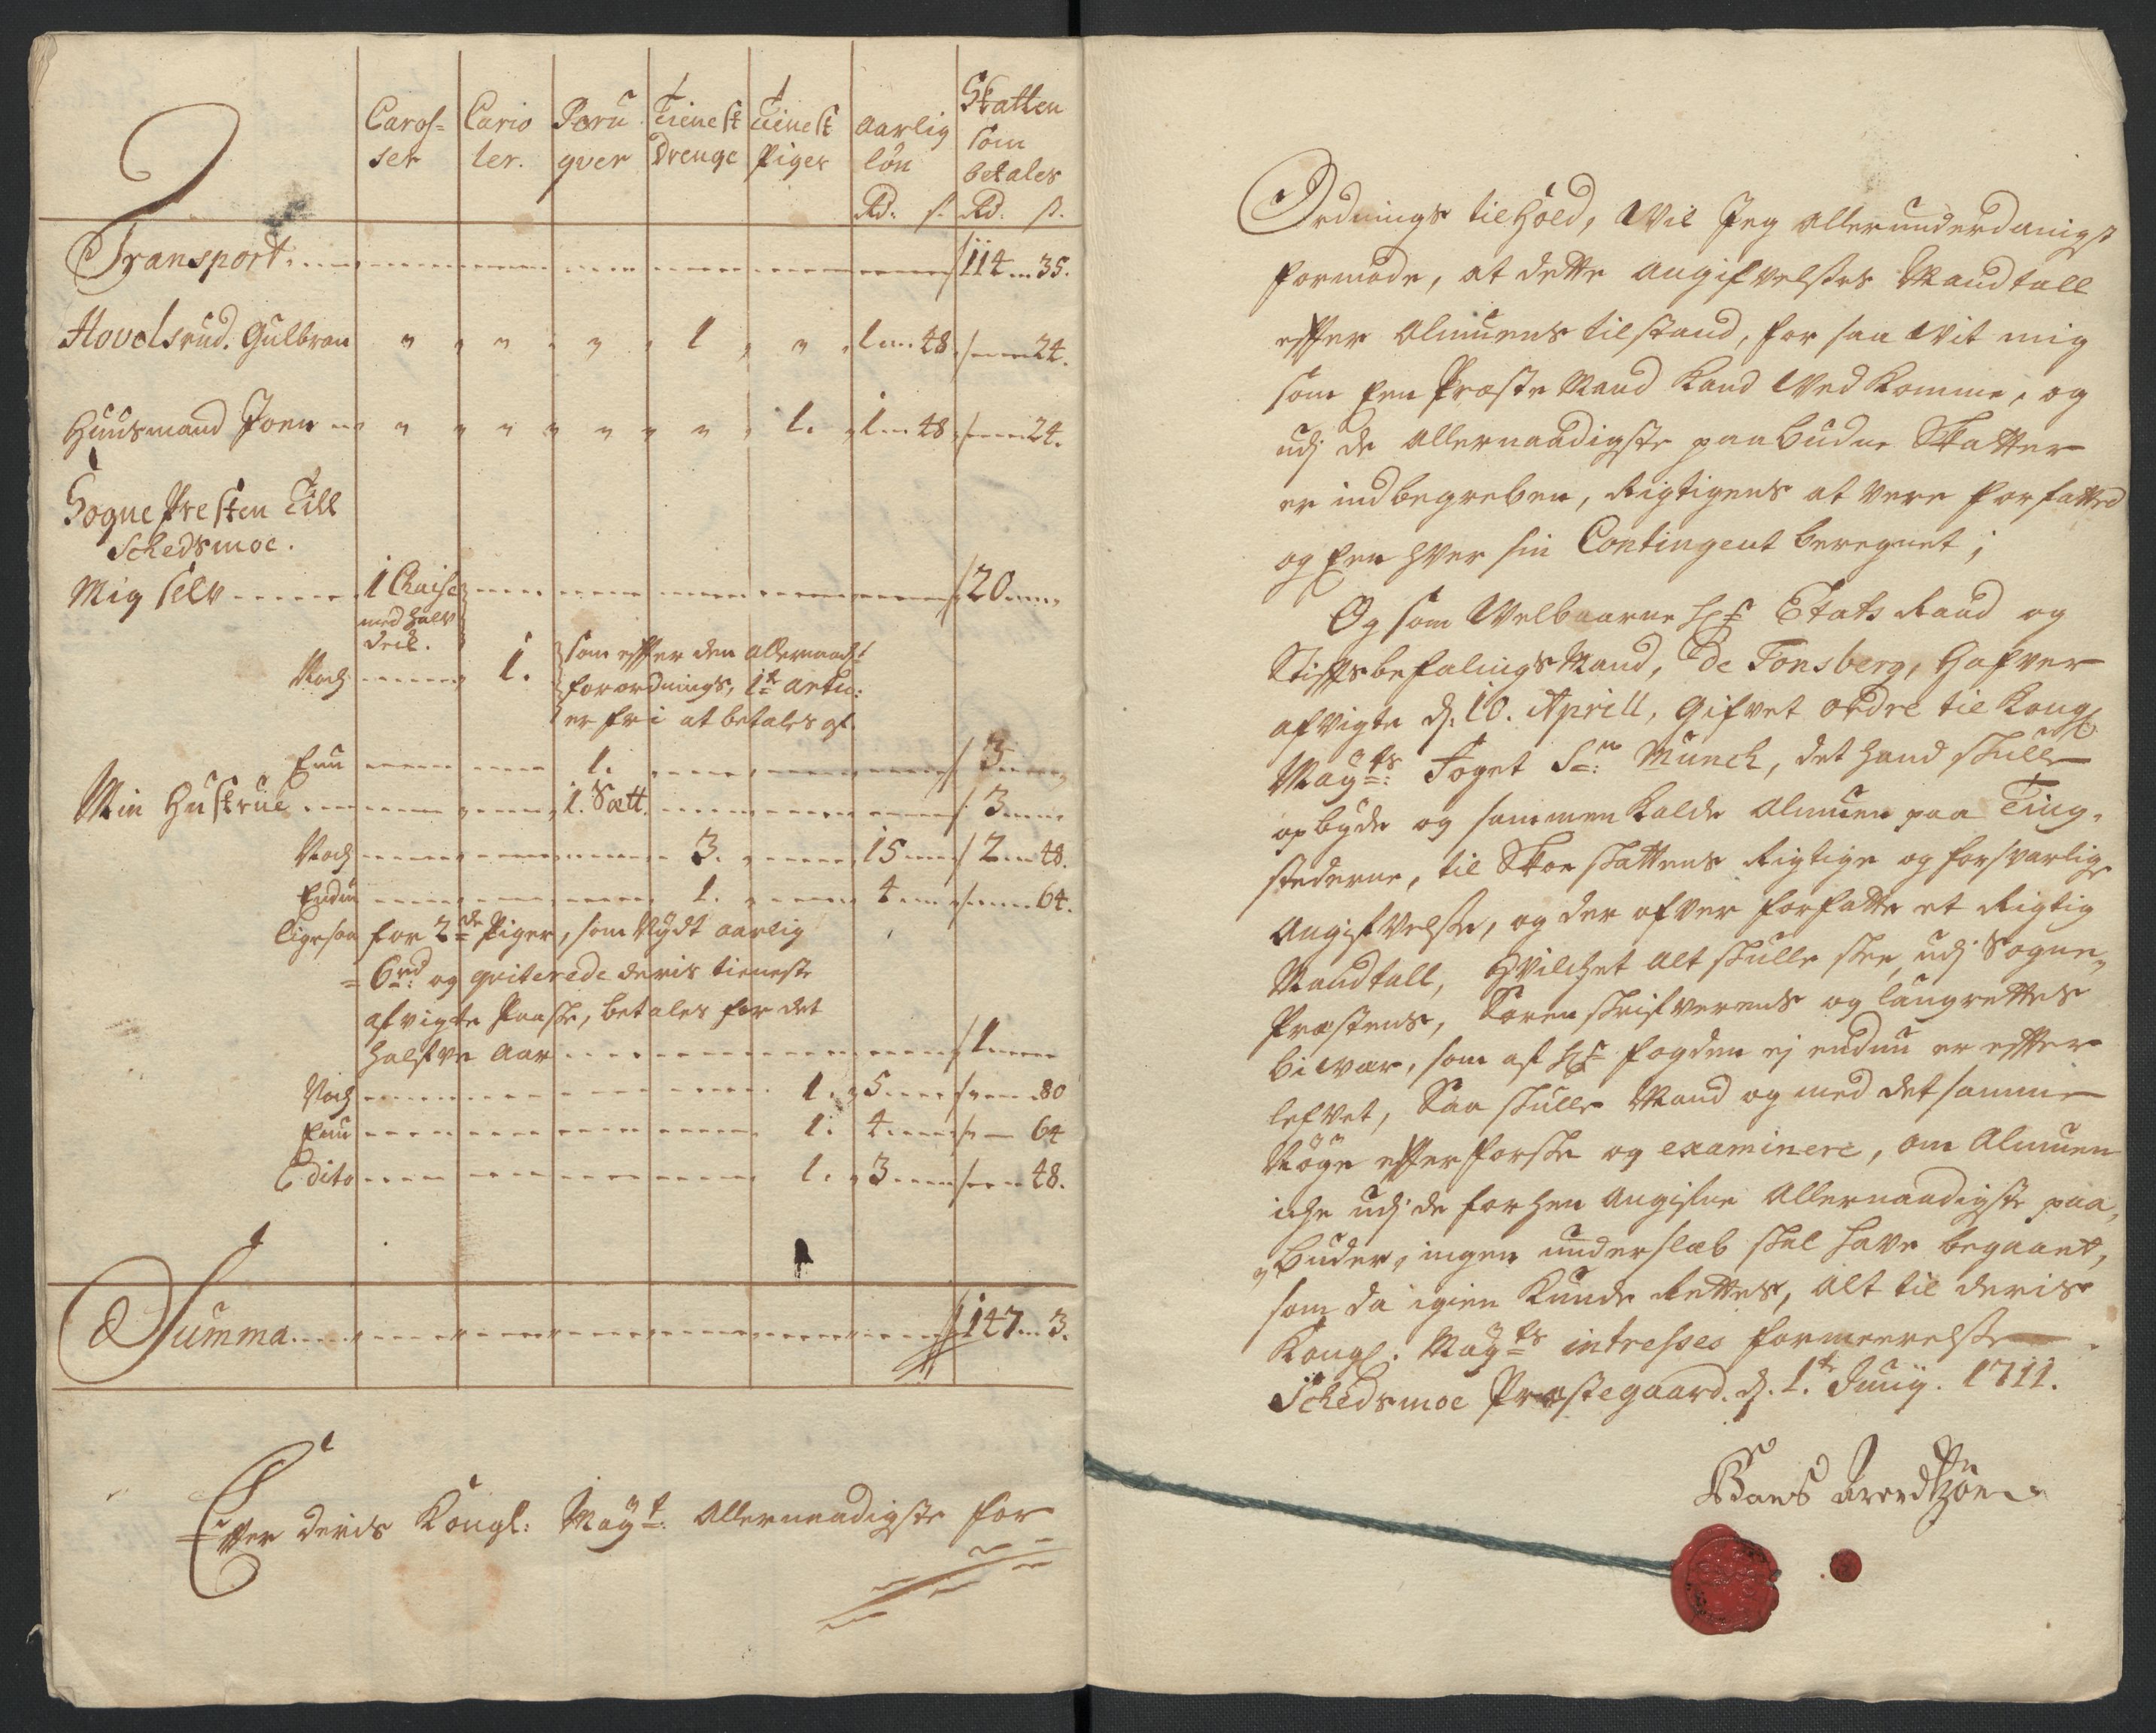 Caros= Cario Peru Tienest Tienest aarlig Skatten
ser ler. quer Drenge Piger lön som
betales
Rd: s. Rd: s.
Transport. 114 35.
Hovelsrud. Gulbran " " " 1 " 1 48 24.
Huusmand Joen " " " " 1. 1 48 24.
Sogne Presten Till
Schedsmoe.
Mig selv 1 Chaise 20
med halv
deil.
Noch 1. som effter den allernaad:
forordnings, 1te artic:
er fri at betales af.
Enu 1. 3
Min Hustrue 1. Sætt. 3
Noch 3. 15 2 48.
Endnu 1. 4 64.
ligesaa for 2de Piger, som Nÿdt aarlig
= 6rd: og qviterede deris tieneste
afvigte Paaske, betales for det
halfve aar 1
Noch 1. 5 80
Enu 1. 4 64
Dito 1. 3 48.
Summa 147 3.
Effter deris Kongl: Mayt: Allernaadigste for
Ordnings tilhold, Vil Jeg allerunderdanigst
formode, at dette angifvelses Mandtall
effter Almuens tilstand, for saa vit mig
som Een Præste Mand kand vedkomme, og
udj de allernaadigste paabudne Skatter
er indbegreben, Rigtigens at være forfatted
og Een hver sin Contingent beregnet;
Og som Velbaarne Hr Etats Raad og
Stiftsbefalings Mand, De Tonsberg, Hafver
afvigte d: 10. Aprill, gifvet ordre til Kongl.
Mayts: Foget Sr: Munch, det hand skulle
opbyde og sammenkalde Almuen paa Ting,
stederne, til Skoe skattens Rigtige og forsvarlige
Angifvelse, og der ofver forfatte et Rigtig
Mandtall, Hvilchet alt skulle skee, udj Sogne,
Præstens, Sorenskrifverens og laugrettes
bivær, som af Hr fogden ej endnu er effter
lefvet, Saa skulle Mand og med det samme
Nöye effterforske og examinere, om Almuen
iche udj de forhen angifne Allernaadigste paa,
buder, ingen underslæb skal have begaaet,
som da igien kunde Rettes, alt til deris
Kongl. Mayts intresses formeerelse.
Schedsmoe Præstegaard. d. 1te Junij. 1711.